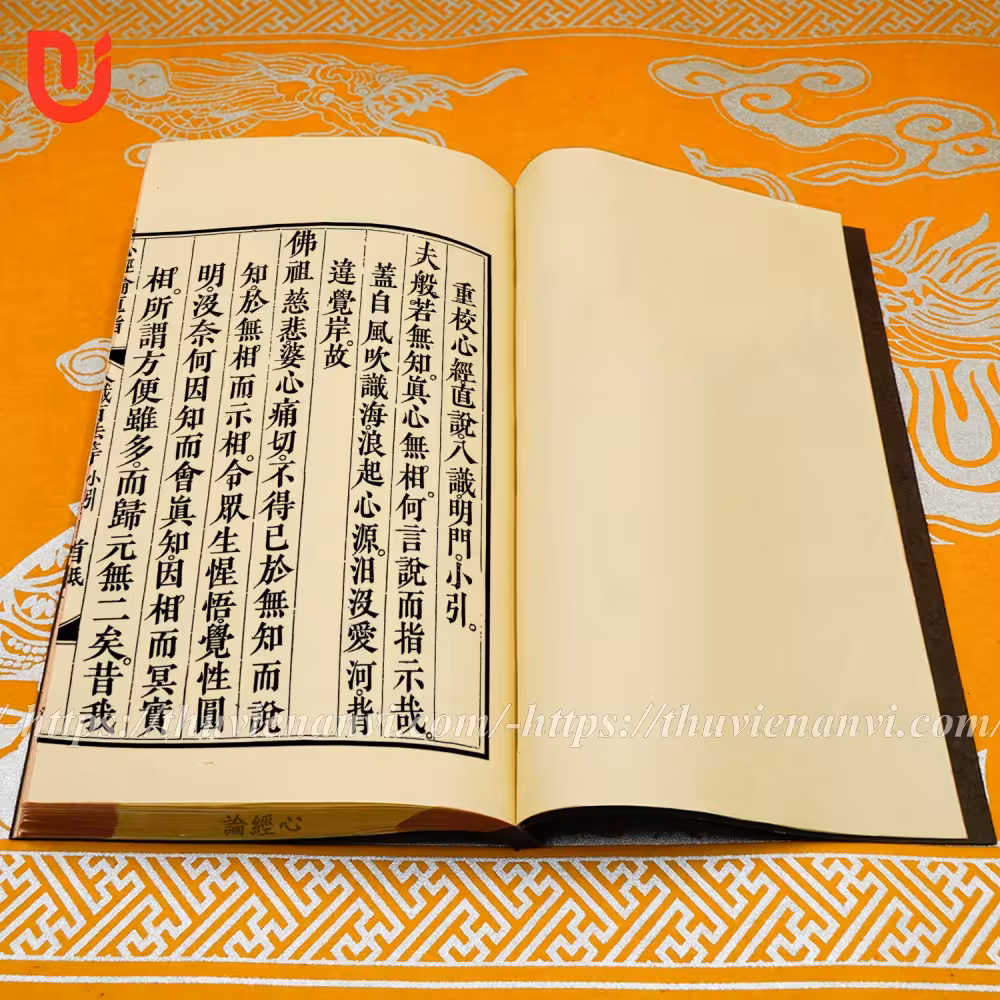 重校心經直說。八識明門。小引。
夫般若無知。眞心無相。何言說而指示哉。
蓋自風吹識海。浪起心源。汨沒愛河。背
違覺岸。故
佛祖慈悲。婆心痛切。不得已於無知而說
知。於無相而示相。令眾生惺悟。覺性圓
明。沒奈何因知而會眞知。因相而冥實
相。所謂方便雖多。而歸元無二矣。昔我
心經論直指
小引
首
論經心
-https://thuvienanvi.com/-https://thuvienanvi.com/